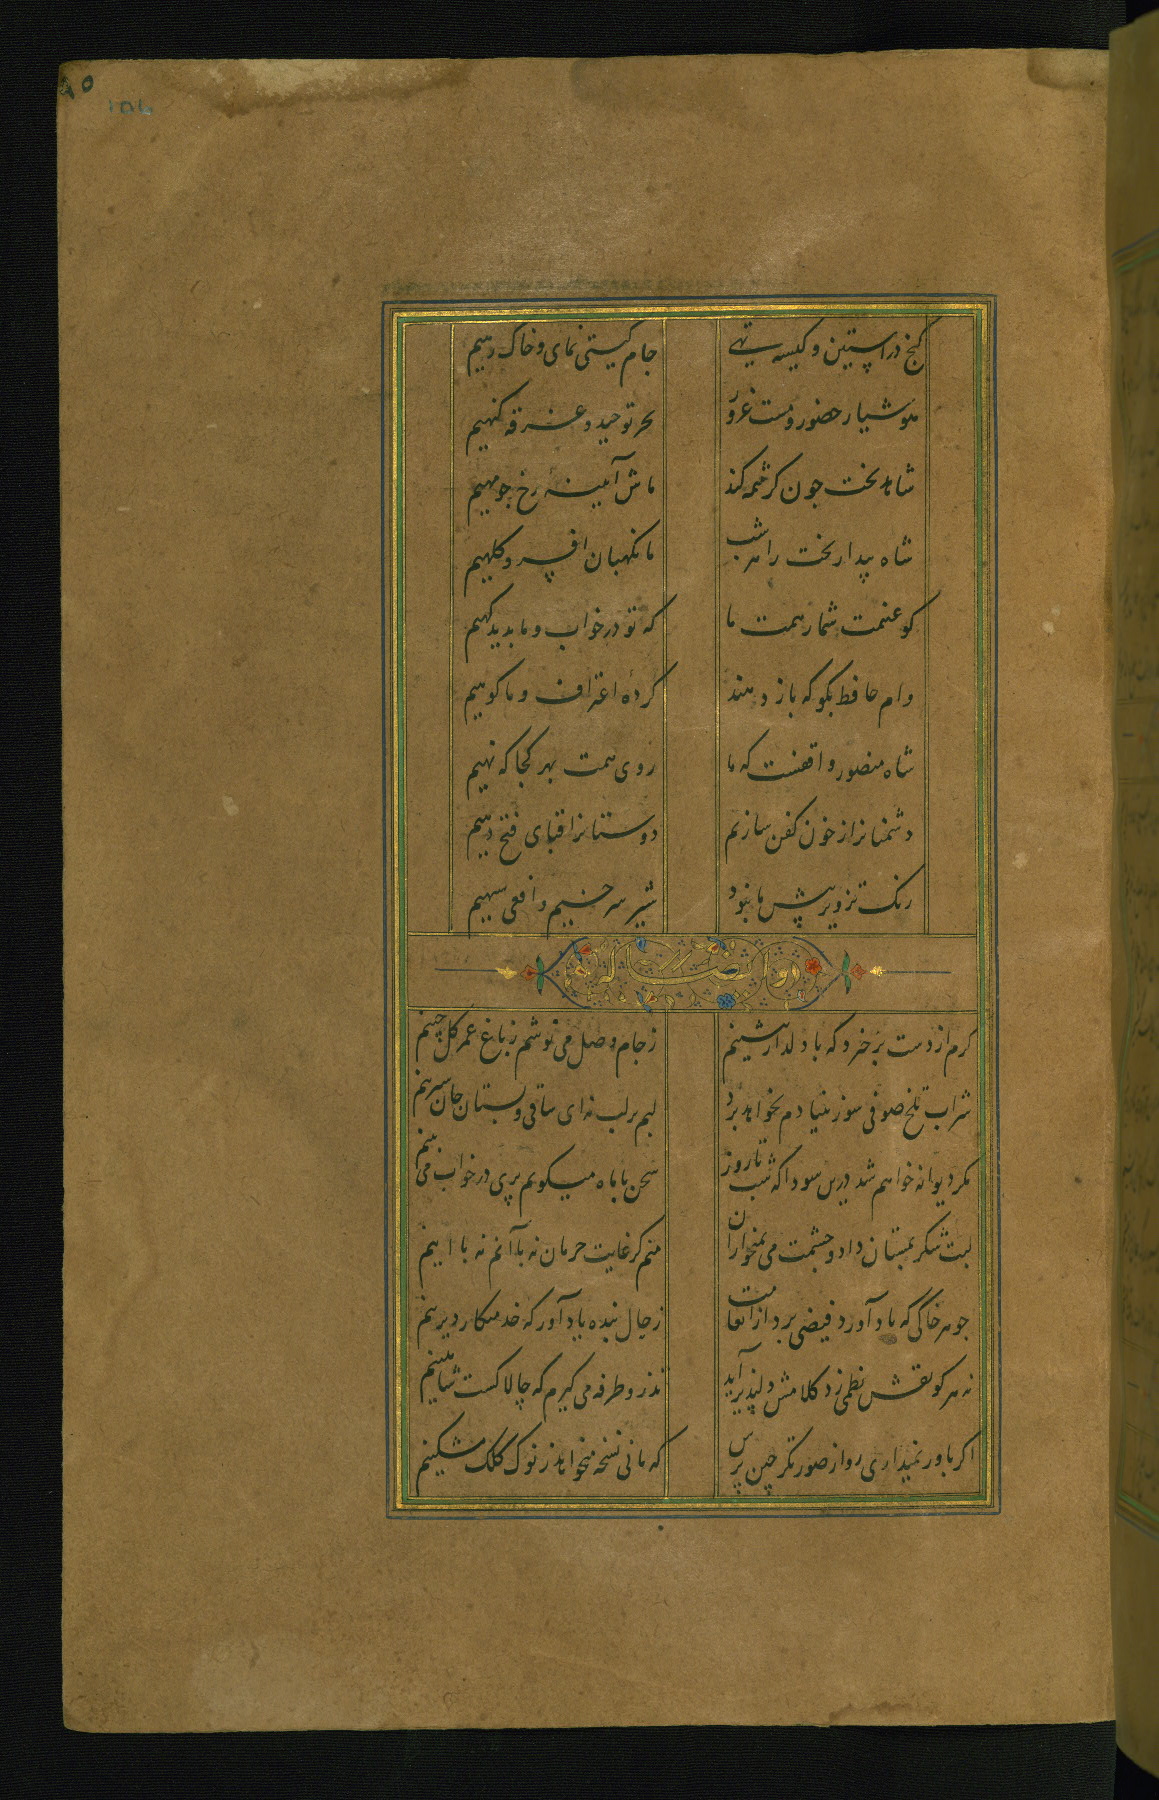 گنج در آستین و کیسه تهی جام گیتی نمای و خاک رهیم
هوشیار حضور و مست غرور بحر توحید و غرقه گنهیم
شاهد بخت چون کرشمه کند ماش آیینه رخ چو مهیم
شاه بیدار بخت را هر شب ما نگهبان افسر و کلهیم
کو غنیمت شمار همت ما که تو در خواب و ما بدیدگهیم
وام حافظ بکو که باز دهند کرده اعتراف و ما گوهیم
شاه منصور واقفست که ما روی همت بهر کجا که نهیم
دشمنانرا ز خون کفن سازیم دوستانرا قبای فتح دهیم
رنک تزویر پیش ما نبود شیر سرخیم و افعی سیهیم
وله ایضا
کرم از دست برخیزد که با دلدار بنشینم ز جام وصل می نوشم ز باغ عمر کل چینم
شراب تلخ صوفی سوز بنیادم بخواهد برد لبم بر لب نه ای ساقی و بستان جان شیرینم
مکر دیوانه خواهم شد درین سودا که شب تا روز سخن با ماه میکویم پری در خواب می بینم
لبت شکر بمستان داد و چشمت می بمیخواران منم کز غایت حرمان نه با آنم نه با اینم
چو هر خاکی که باد آورد فیضی برد از انعامت ز حال بنده یاد آور که خدمتکار دیرینم
نه هر کو نقش نظمی زد کلامش دلپذیر آید تذرو طرفه می کیرم که چالاکست شاهینم
اکر باور نمیداری رو از صورتکر چین پرس که مانی نسخه میخواهد ز نوک کلک مشکینم